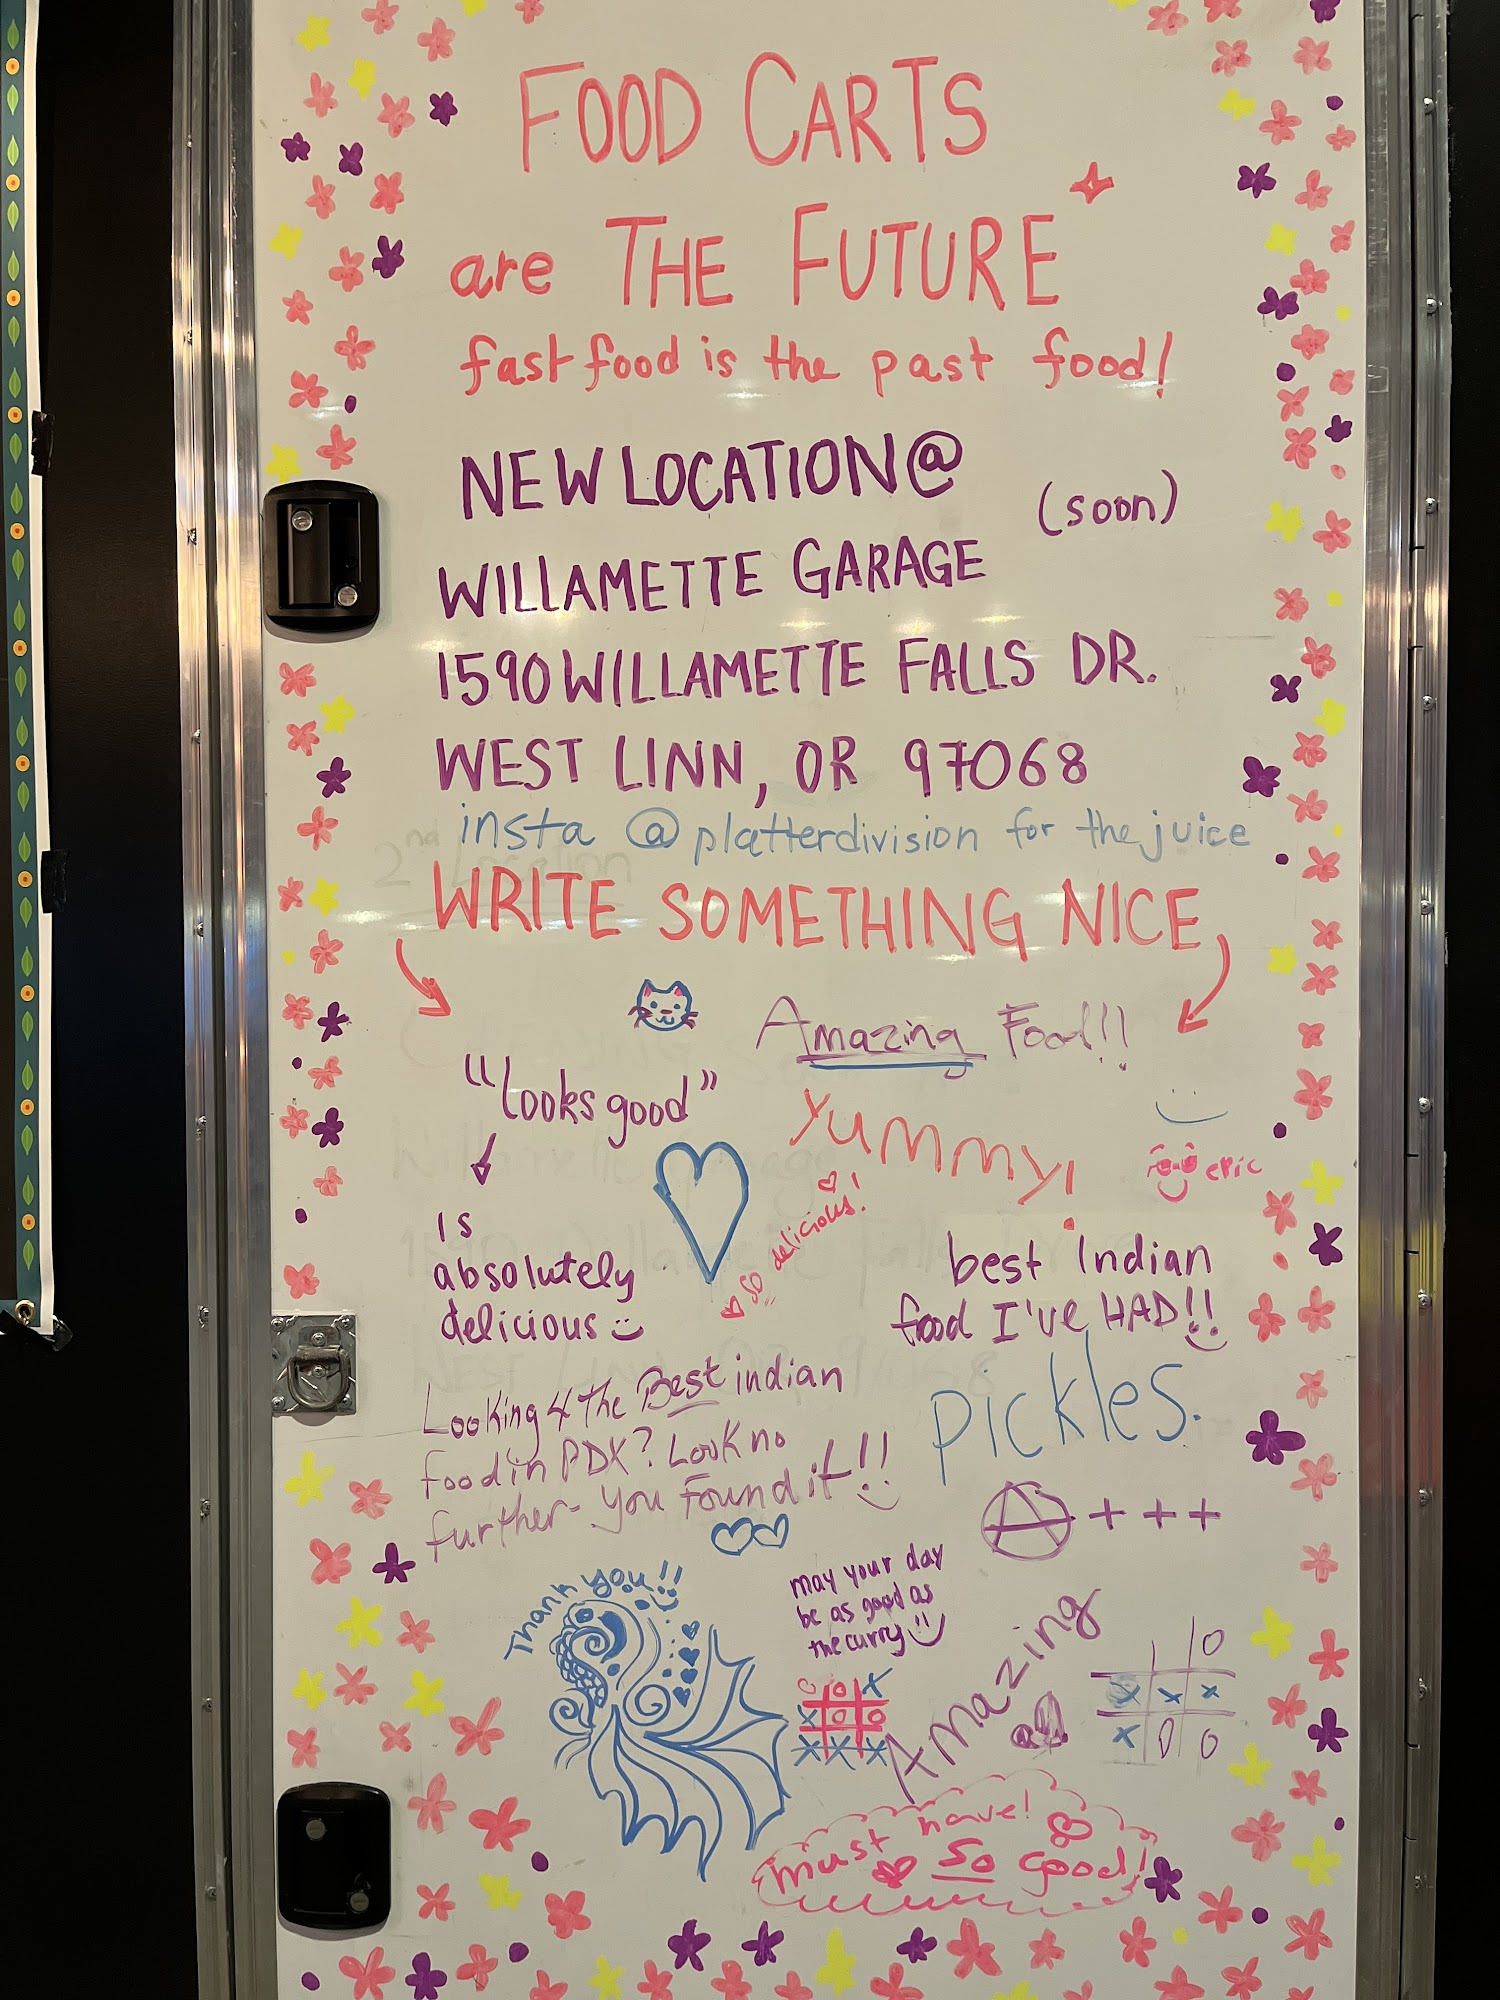 FOOD CARTS
are THE FUTURE
fast food is the past food!
NEW LOCATION @
(soon)
WILLAMETTE GARAGE
1590 WILLAMETTE FALLS DR.
WEST LINN, OR 97068
insta @platterdivision for the juice
2nd Location
WRITE SOMETHING NICE
Amazing Food!!
"looks good"
YUMMY!
epic
is
absolutely
delicious
so delicious!
best Indian
food I've HAD!!
Looking 4 the Best indian
food in PDX? Look no
further - you Found it!!!
Pickles.
A+++
Thank you!!
may your day
be as good as
the curry!!
Amazing
O
O O X
X O O
X X X
X X X
X O O
must have!
So Good!